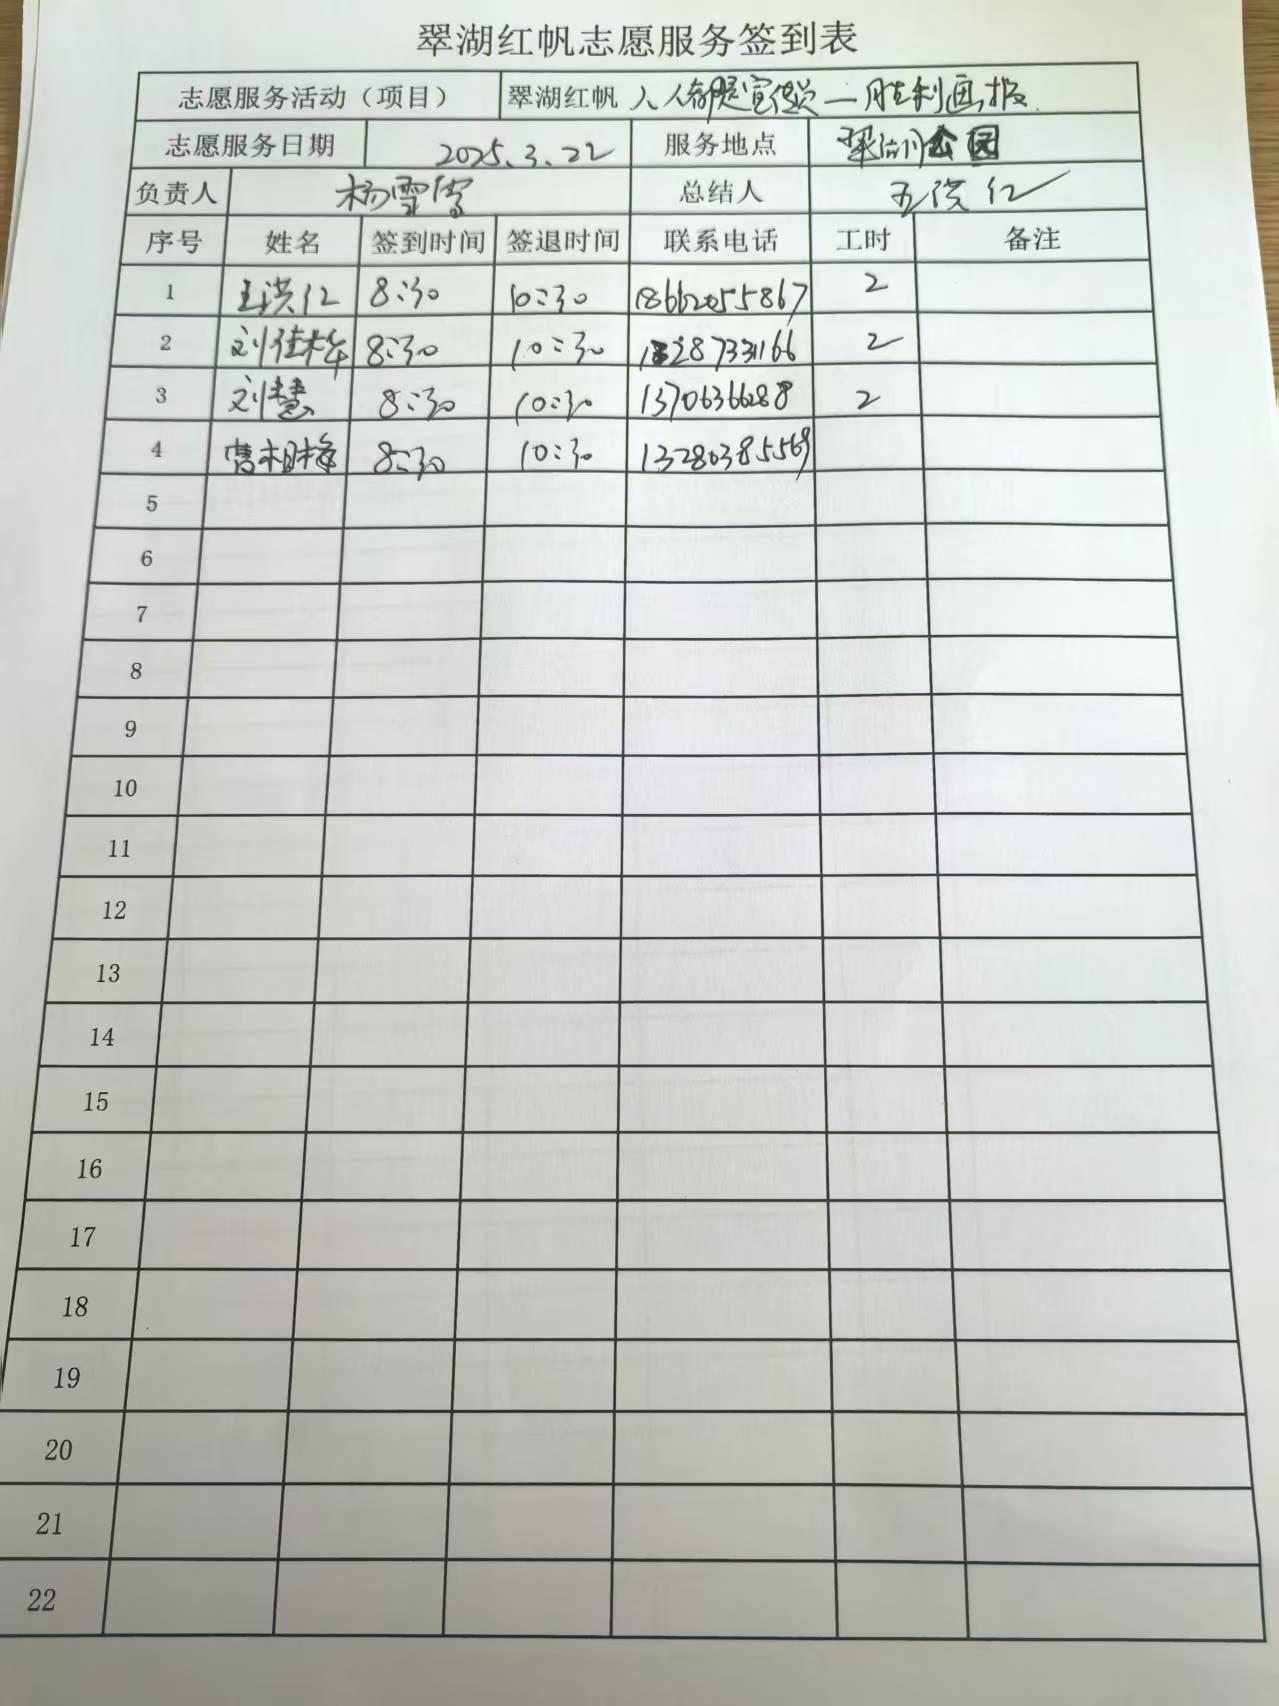 翠湖红帆志愿服务签到表
志愿服务活动（项目） 翠湖红帆 人人都是宣传员—胜利画报
志愿服务日期 2025.3.22 服务地点 公园
负责人 杨雪 总结人 王洪仁
序号 姓名 签到时间 签退时间 联系电话 工时 备注
1 王洪仁 8:30 10:30 2
2 刘佳 8:30 10:30 2
3 刘慧 8:30 10:30 13706366288 2
4 曹相 8:30 10:30 13280385569
5
6
7
8
9
10
11
12
13
14
15
16
17
18
19
20
21
22